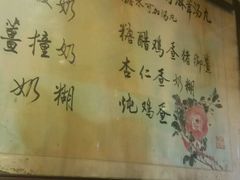 奶
薑撞奶
奶糊
可加湯丸
糖醋鸡蛋猪脚薑
杏仁蛋奶糊
炖鸡蛋